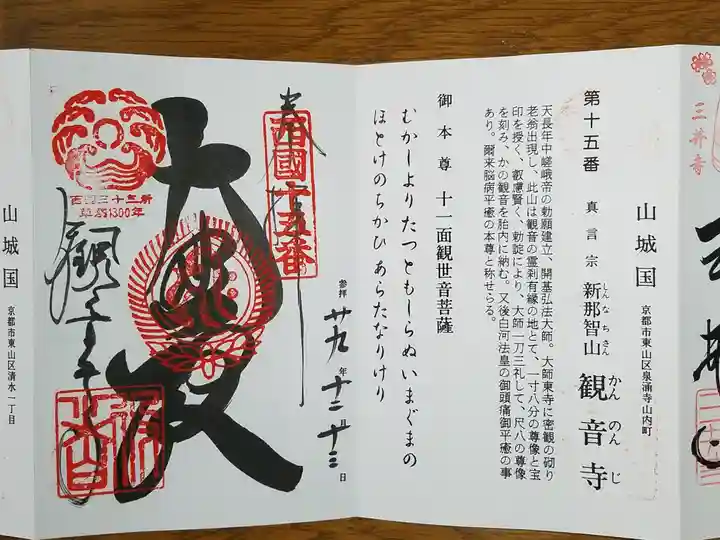 三井寺
山城国
京都市東山区泉涌寺山内町
第十五番
真言宗
新那智山
しんなちさん
観音寺
かんのんじ
天長年中嵯峨帝の勅願建立、開基弘法大師。大師東寺に密観の砌り
老翁出現し、此山は観音の霊刹有縁の地とて、一寸八分の尊像と宝
印を授く、叡慮賢く、勅諚により、大師一刀三礼して、尺八の尊像
を刻み、かの観音を胎内に納む。又後白河法皇の御頭痛御平癒の事
あり。爾来脳病平癒の本尊と称せらる。
御本尊 十一面観世音菩薩
むかしよりたつともしらぬいまぐまの
ほとけのちかひあらたなりけり
奉拝
西國十五番
参拝 廿九年十二月廿三日
大悲殿
西国三十三所
草創1300年
観音寺
山城国
京都市東山区清水一丁目